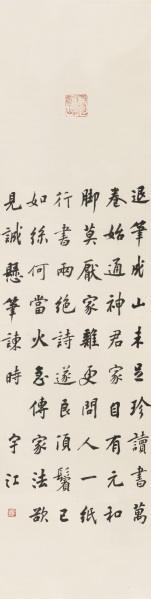 退筆成山未足珍讀書萬
卷始通神君家自有元和
脚莫厭家雞更問人一紙
行書兩絕詩遂良須鬢已
如絲何當火急傳家法欲
見誠懸筆諫時 宇江